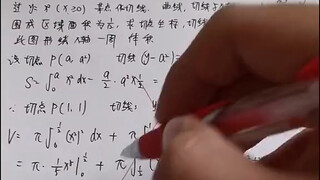 过 y=x²(x≥0) 某点作切线, 曲线, 切线与
围成区域面积为 求切点坐标, 切线
此图形绕x轴一周 体积
设切点 P(a, a²) 切线 (y-a²)=
S=∫₀ᵃ x² dx - a/2 · a² × 1/2 =
∵ 切点 P(1,1) 切线: y
V= π∫₀^(1/2) (x²)² dx + π∫
= π · 1/5 x⁵ |₀^(1/2) + π∫